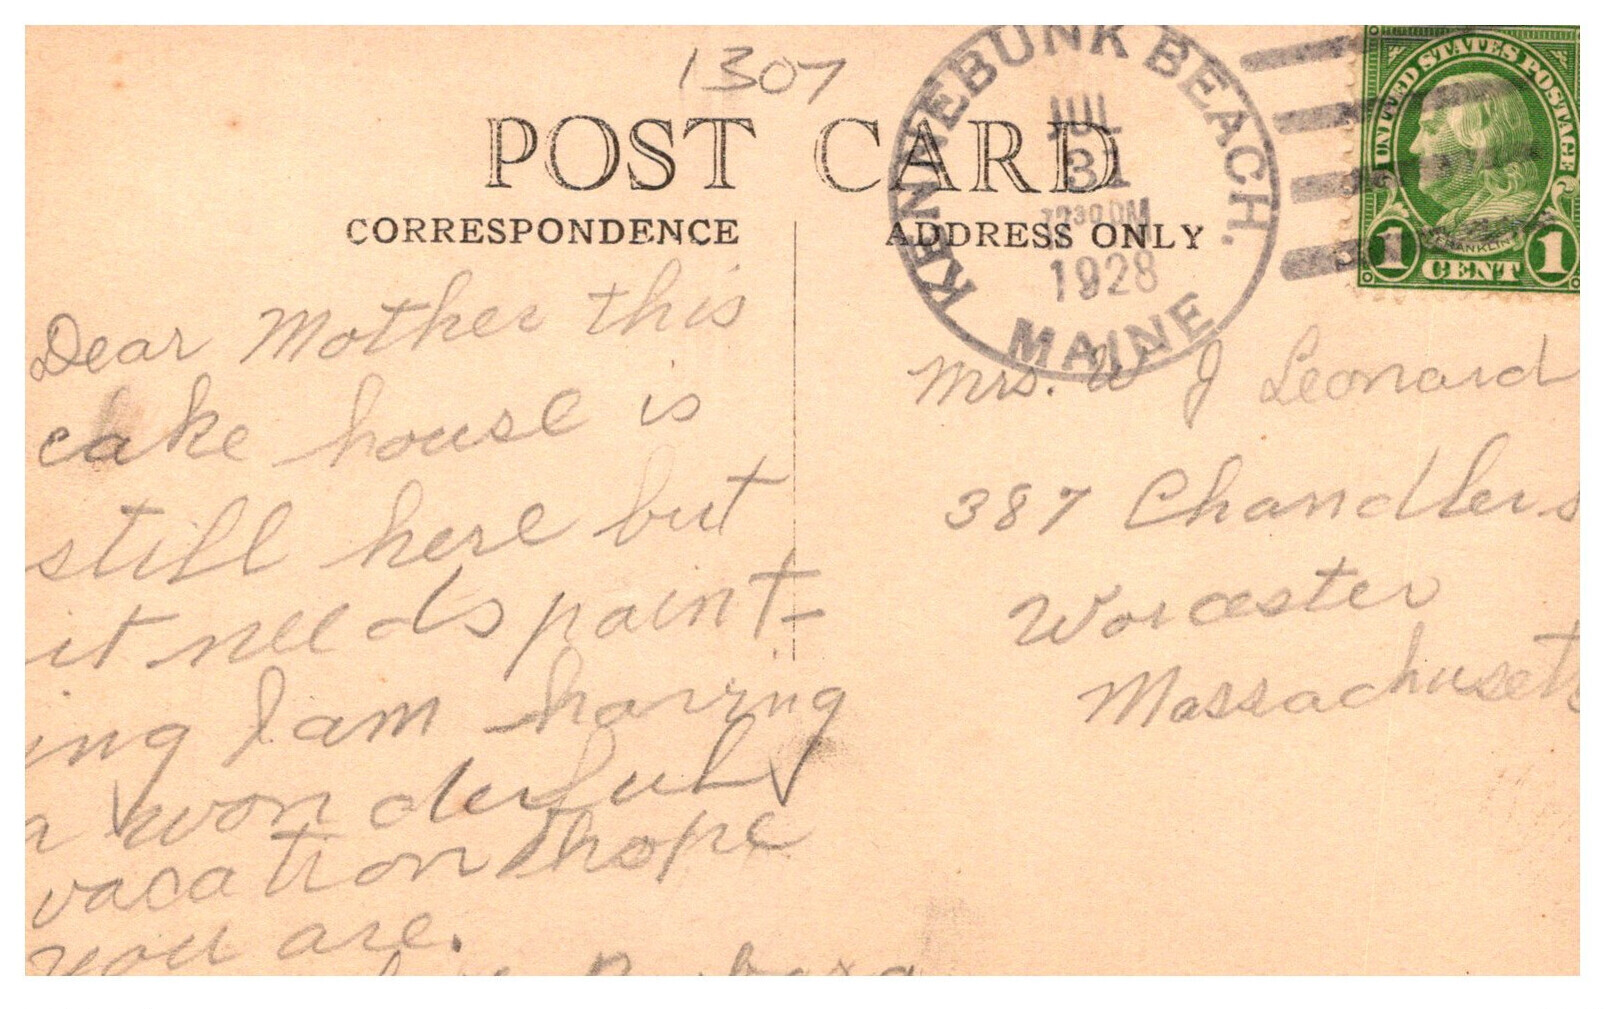 1307
POST CARD
CORRESPONDENCE
ADDRESS ONLY
KENNEBUNK BEACH.
JUL
31
1928
MAINE
UNITED STATES POSTAGE
FRANKLIN
1 CENT 1
Dear Mother this
cake house is
still here but
it needs paint-
ing I am having
a wonderful
vacation hope
you are.
Mrs. W J Leonard
387 Chandler s
Worcester
Massachusetts